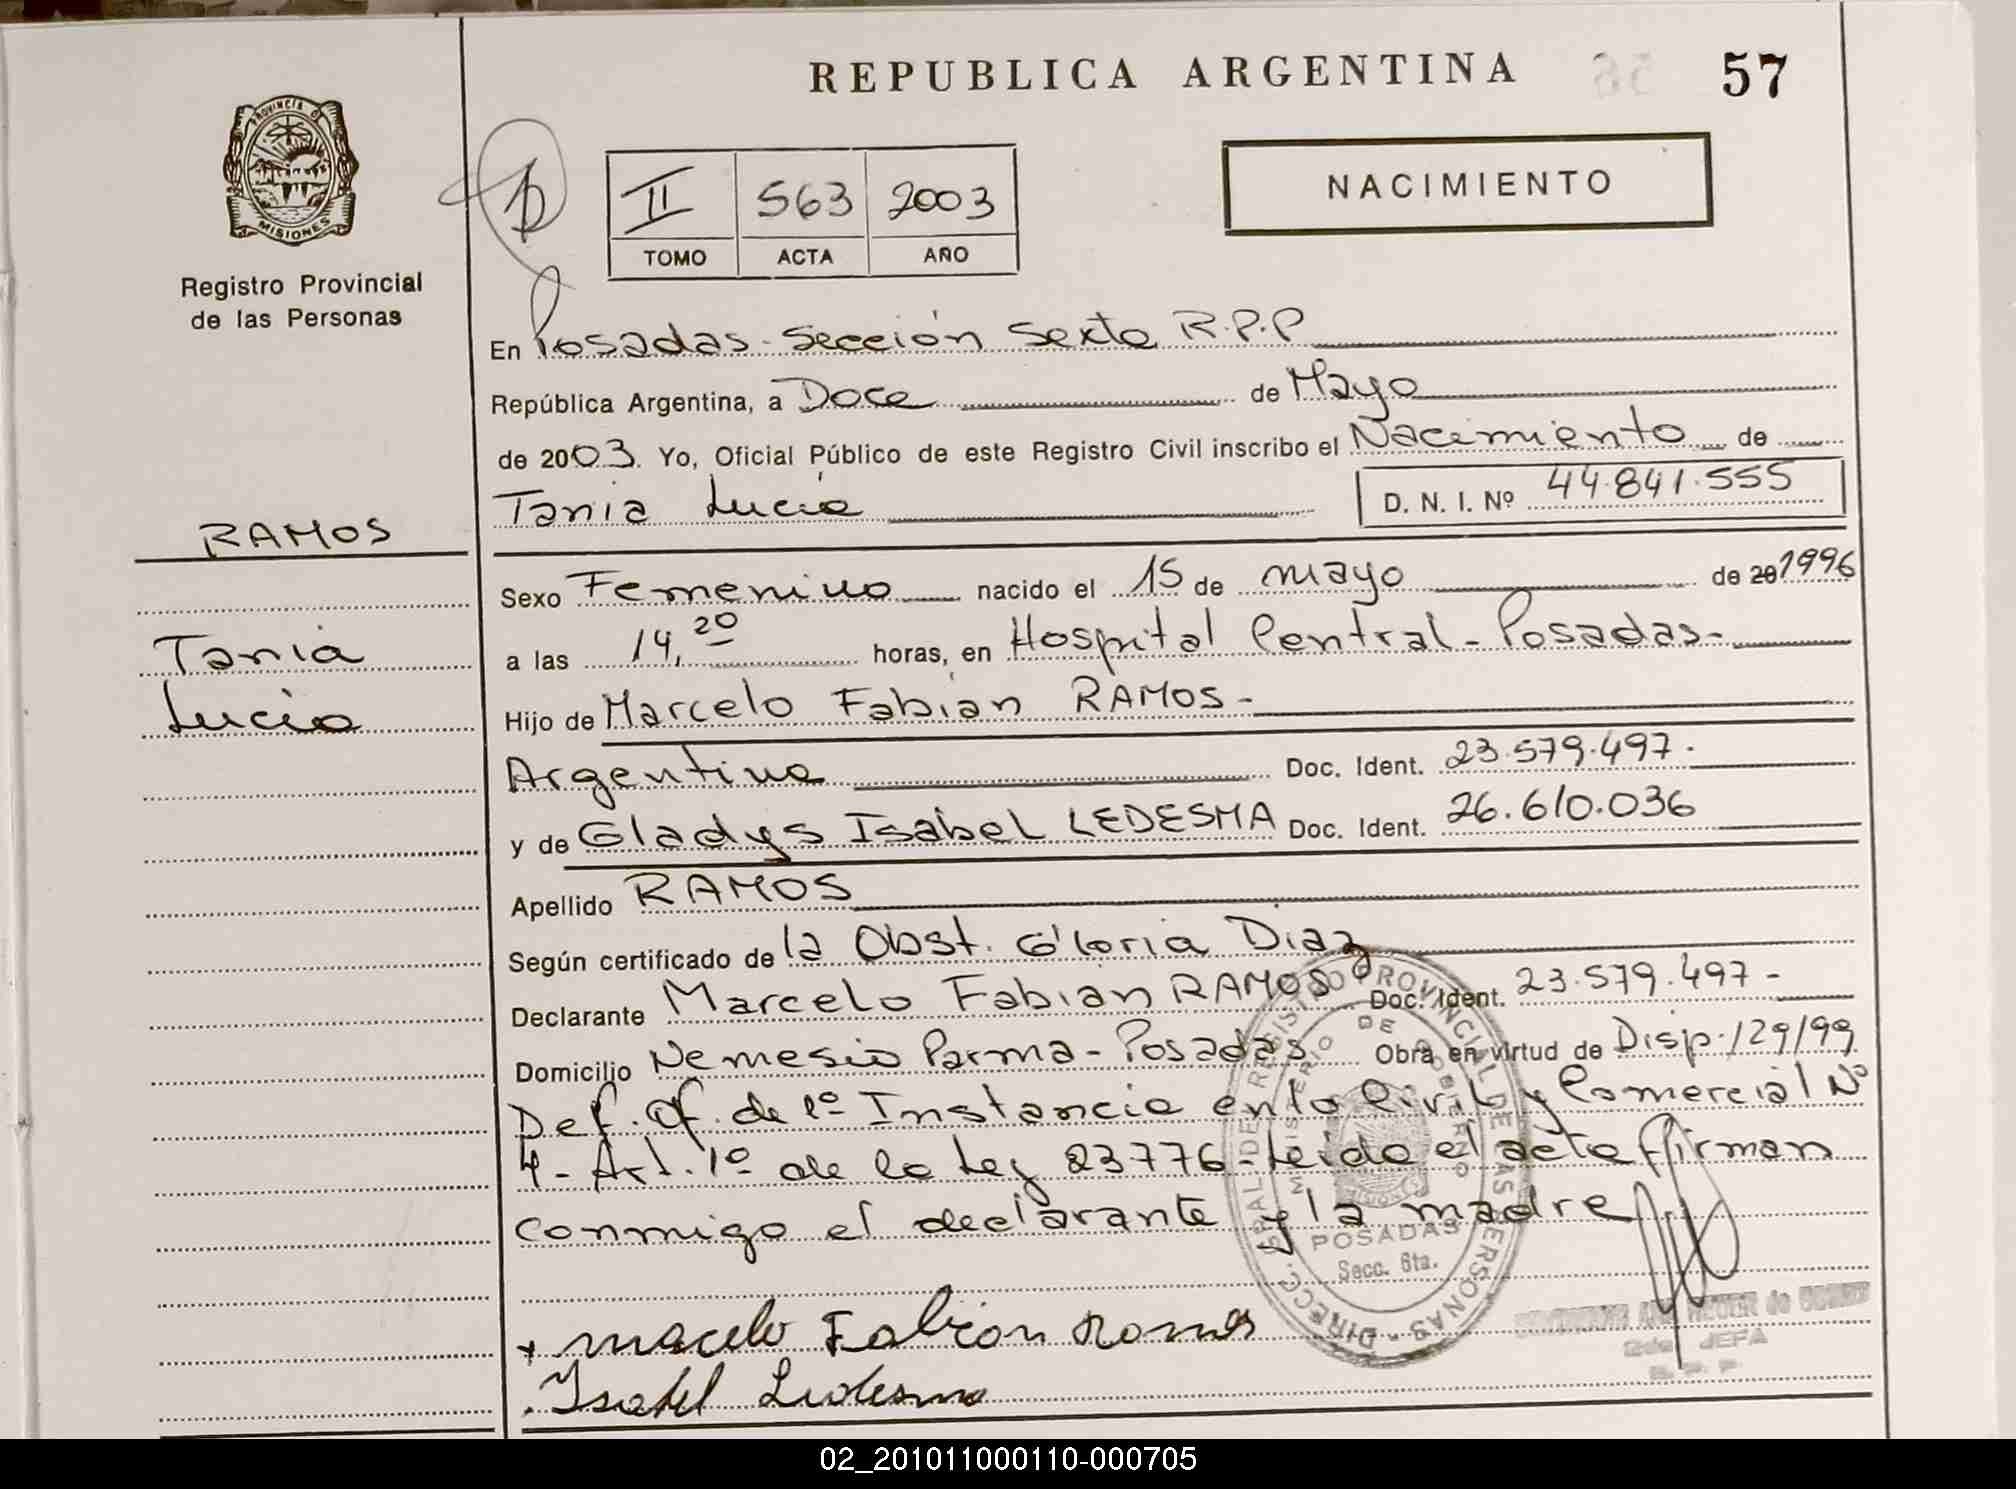 REPUBLICA ARGENTINA 57
PROVINCIA DE
MISIONES
Registro Provincial
de las Personas
II 563 2003
TOMO ACTA AÑO
NACIMIENTO
En Posadas - Sección Sexta R.P.P
República Argentina, a Doce de Mayo
de 2003. Yo, Oficial Público de este Registro Civil inscribo el Nacimiento de
Tania Lucia D. N. I. Nº 44.841.555
RAMOS
Tania
Lucia
Sexo Femenino nacido el 15 de mayo de 20 1996
a las 14,20 horas, en Hospital Central - Posadas -
Hijo de Marcelo Fabian RAMOS -
Argentino Doc. Ident. 23.579.497.
y de Gladys Isabel LEDESMA Doc. Ident. 26.610.036
Apellido RAMOS
Según certificado de la Obst. Gloria Diaz
Declarante Marcelo Fabian RAMOS Doc. Ident. 23.579.497 -
Domicilio Nemesio Parma - Posadas Obra en virtud de Disp. 129/99
Def. Of. de 1º Instancia en lo Civil y Comercial Nº
4 - Art. 1º de la Ley 23776 - Leido el acta firman
conmigo el declarante y la madre
DIRECC. GRAL DE REGISTRO PROVINCIAL DE LAS PERSONAS
MINISTERIO DE GOBIERNO
MISIONES
POSADAS
Secc. 6ta.
Marcelo Fabian Ramos
Isabel Ledesma
JEFA
02_201011000110-000705